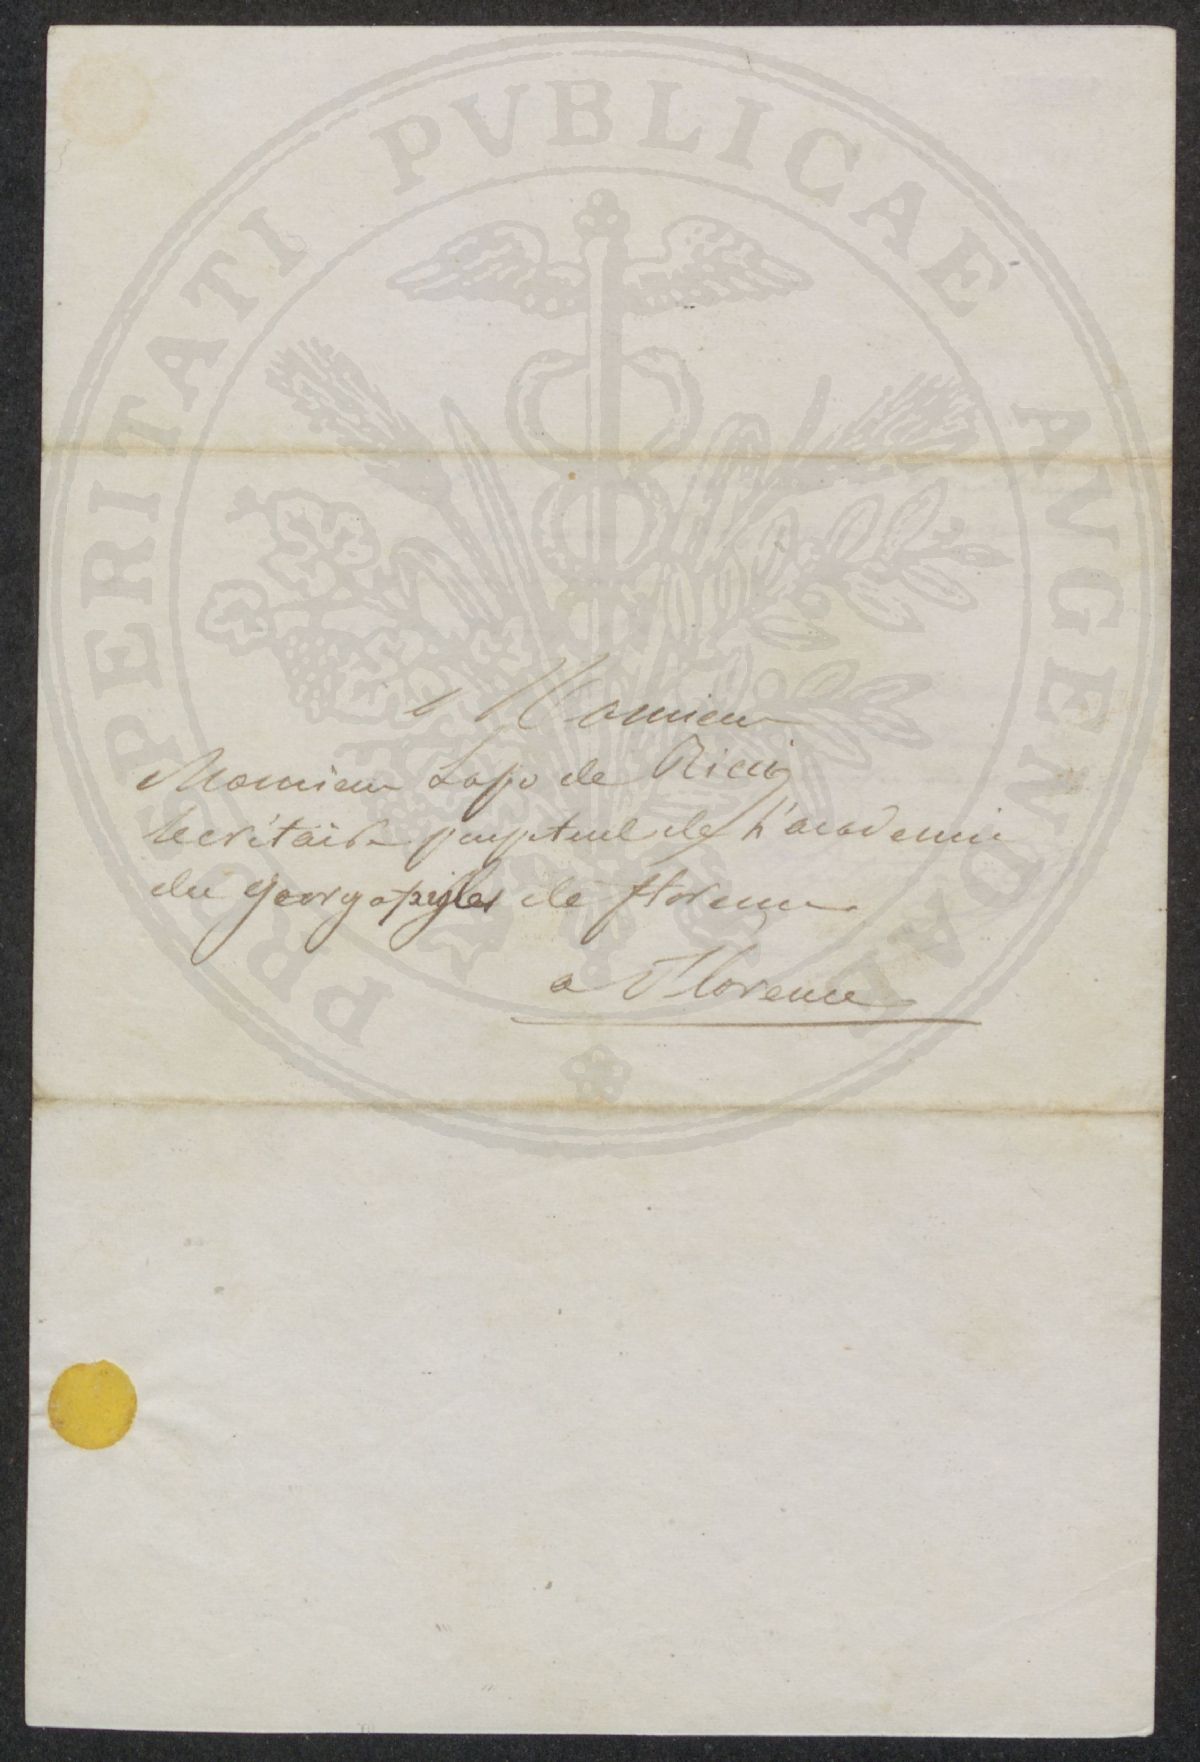 PROSPERITATI PUBLICAE AUGENDAE
Monsieur
Monsieur Lapo de Ricci
secrétaire perpetuel de l'academie
des georgophiles de florence
a Florence